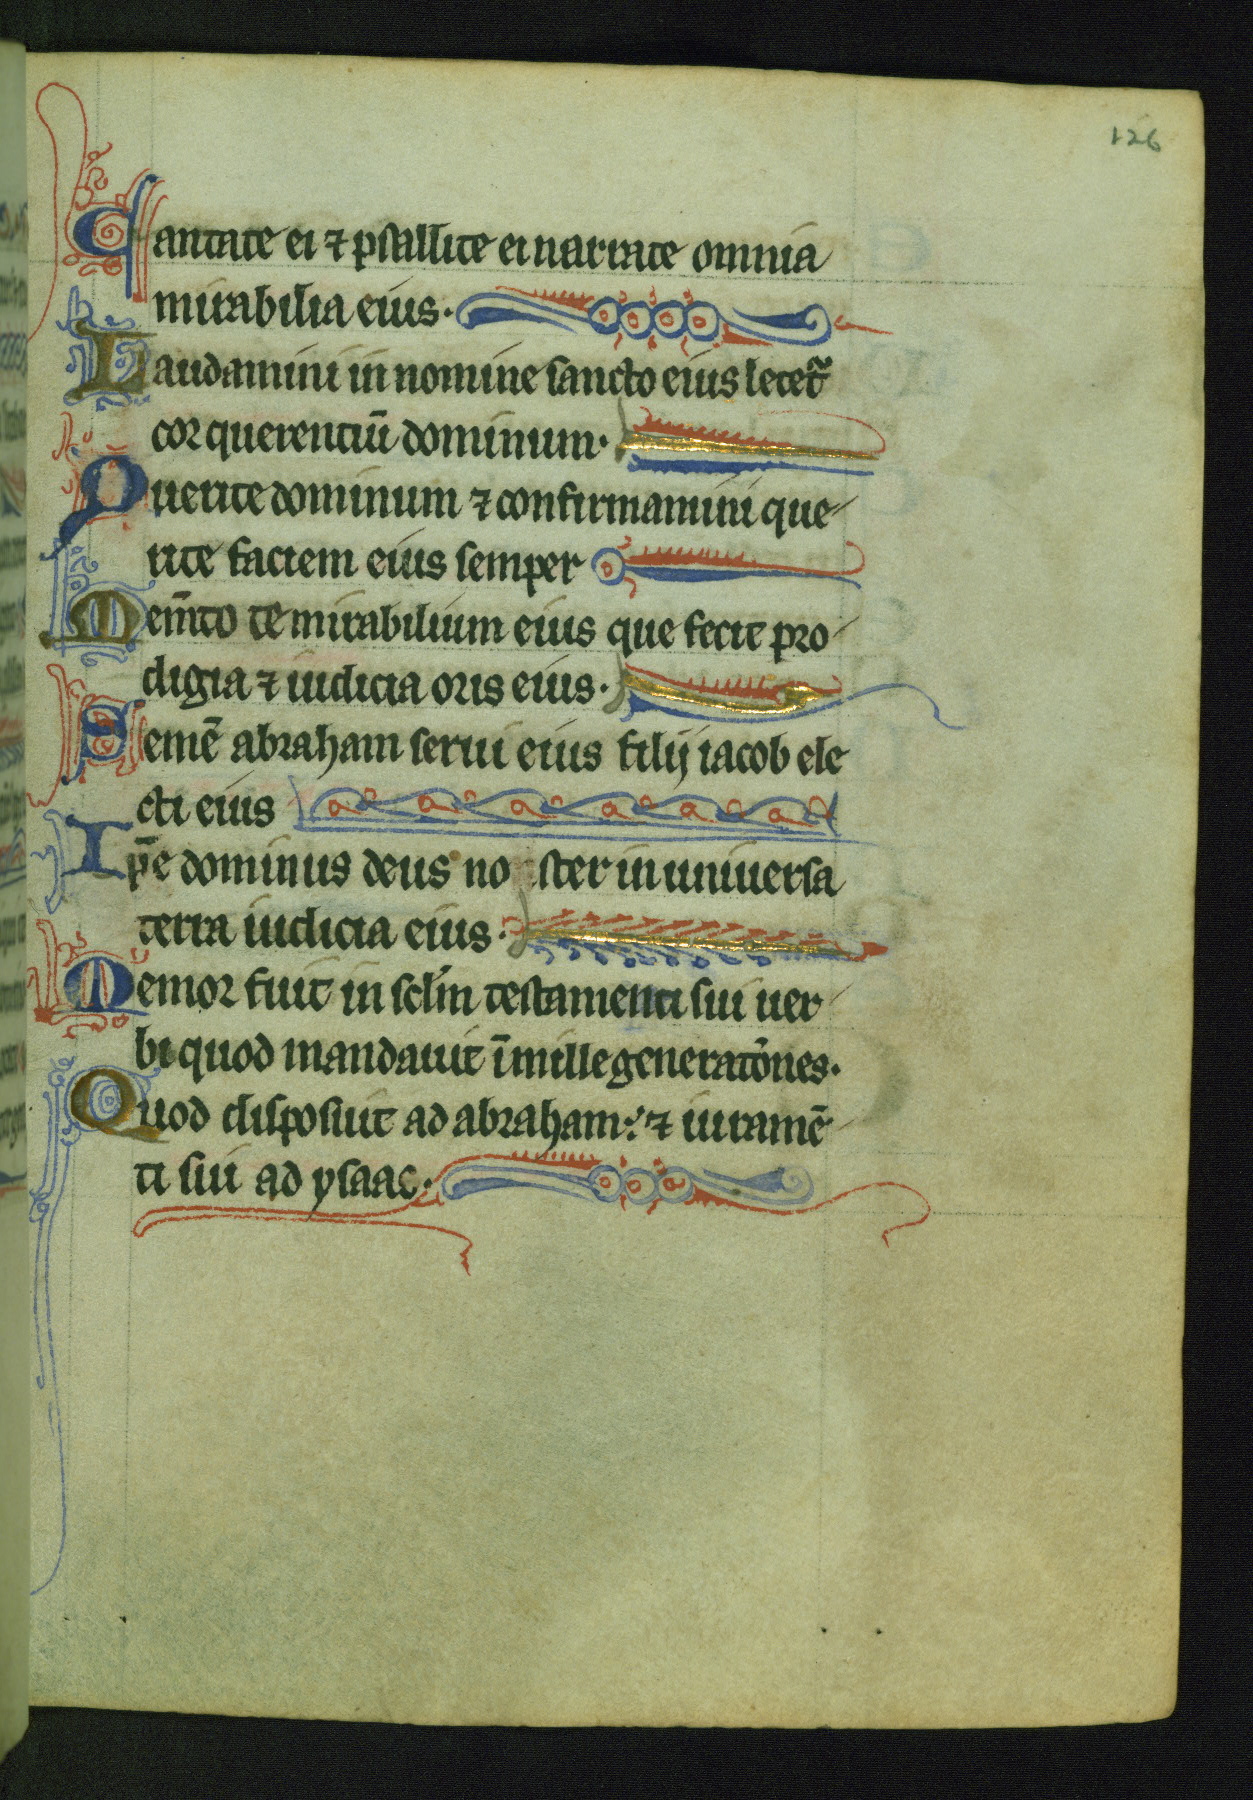 126
Cantate ei ⁊ psallite ei narrate omnia
mirabilia eius.
Laudamini in nomine sancto eius letet᷑
cor querentiū dominum.
Querite dominum ⁊ confirmamini que
rite faciem eius semper
Mem̄to te mirabilium eius que fecit pro
digia ⁊ iudicia oris eius.
Semē abraham serui eius filij iacob ele
cti eius
Ip̄e dominus deus no ster in uniuersa
terra iudicia eius.
Memor fuit in sc̄lm testamenti sui uer
bi quod mandauit ī mille generatōnes.
Quod disposuit ad abraham: ⁊ iuramē
ti sui ad ysaac.